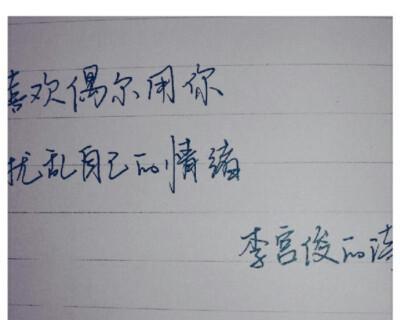 喜欢偶尔用你
扰乱自己的情绪
李宫俊的诗